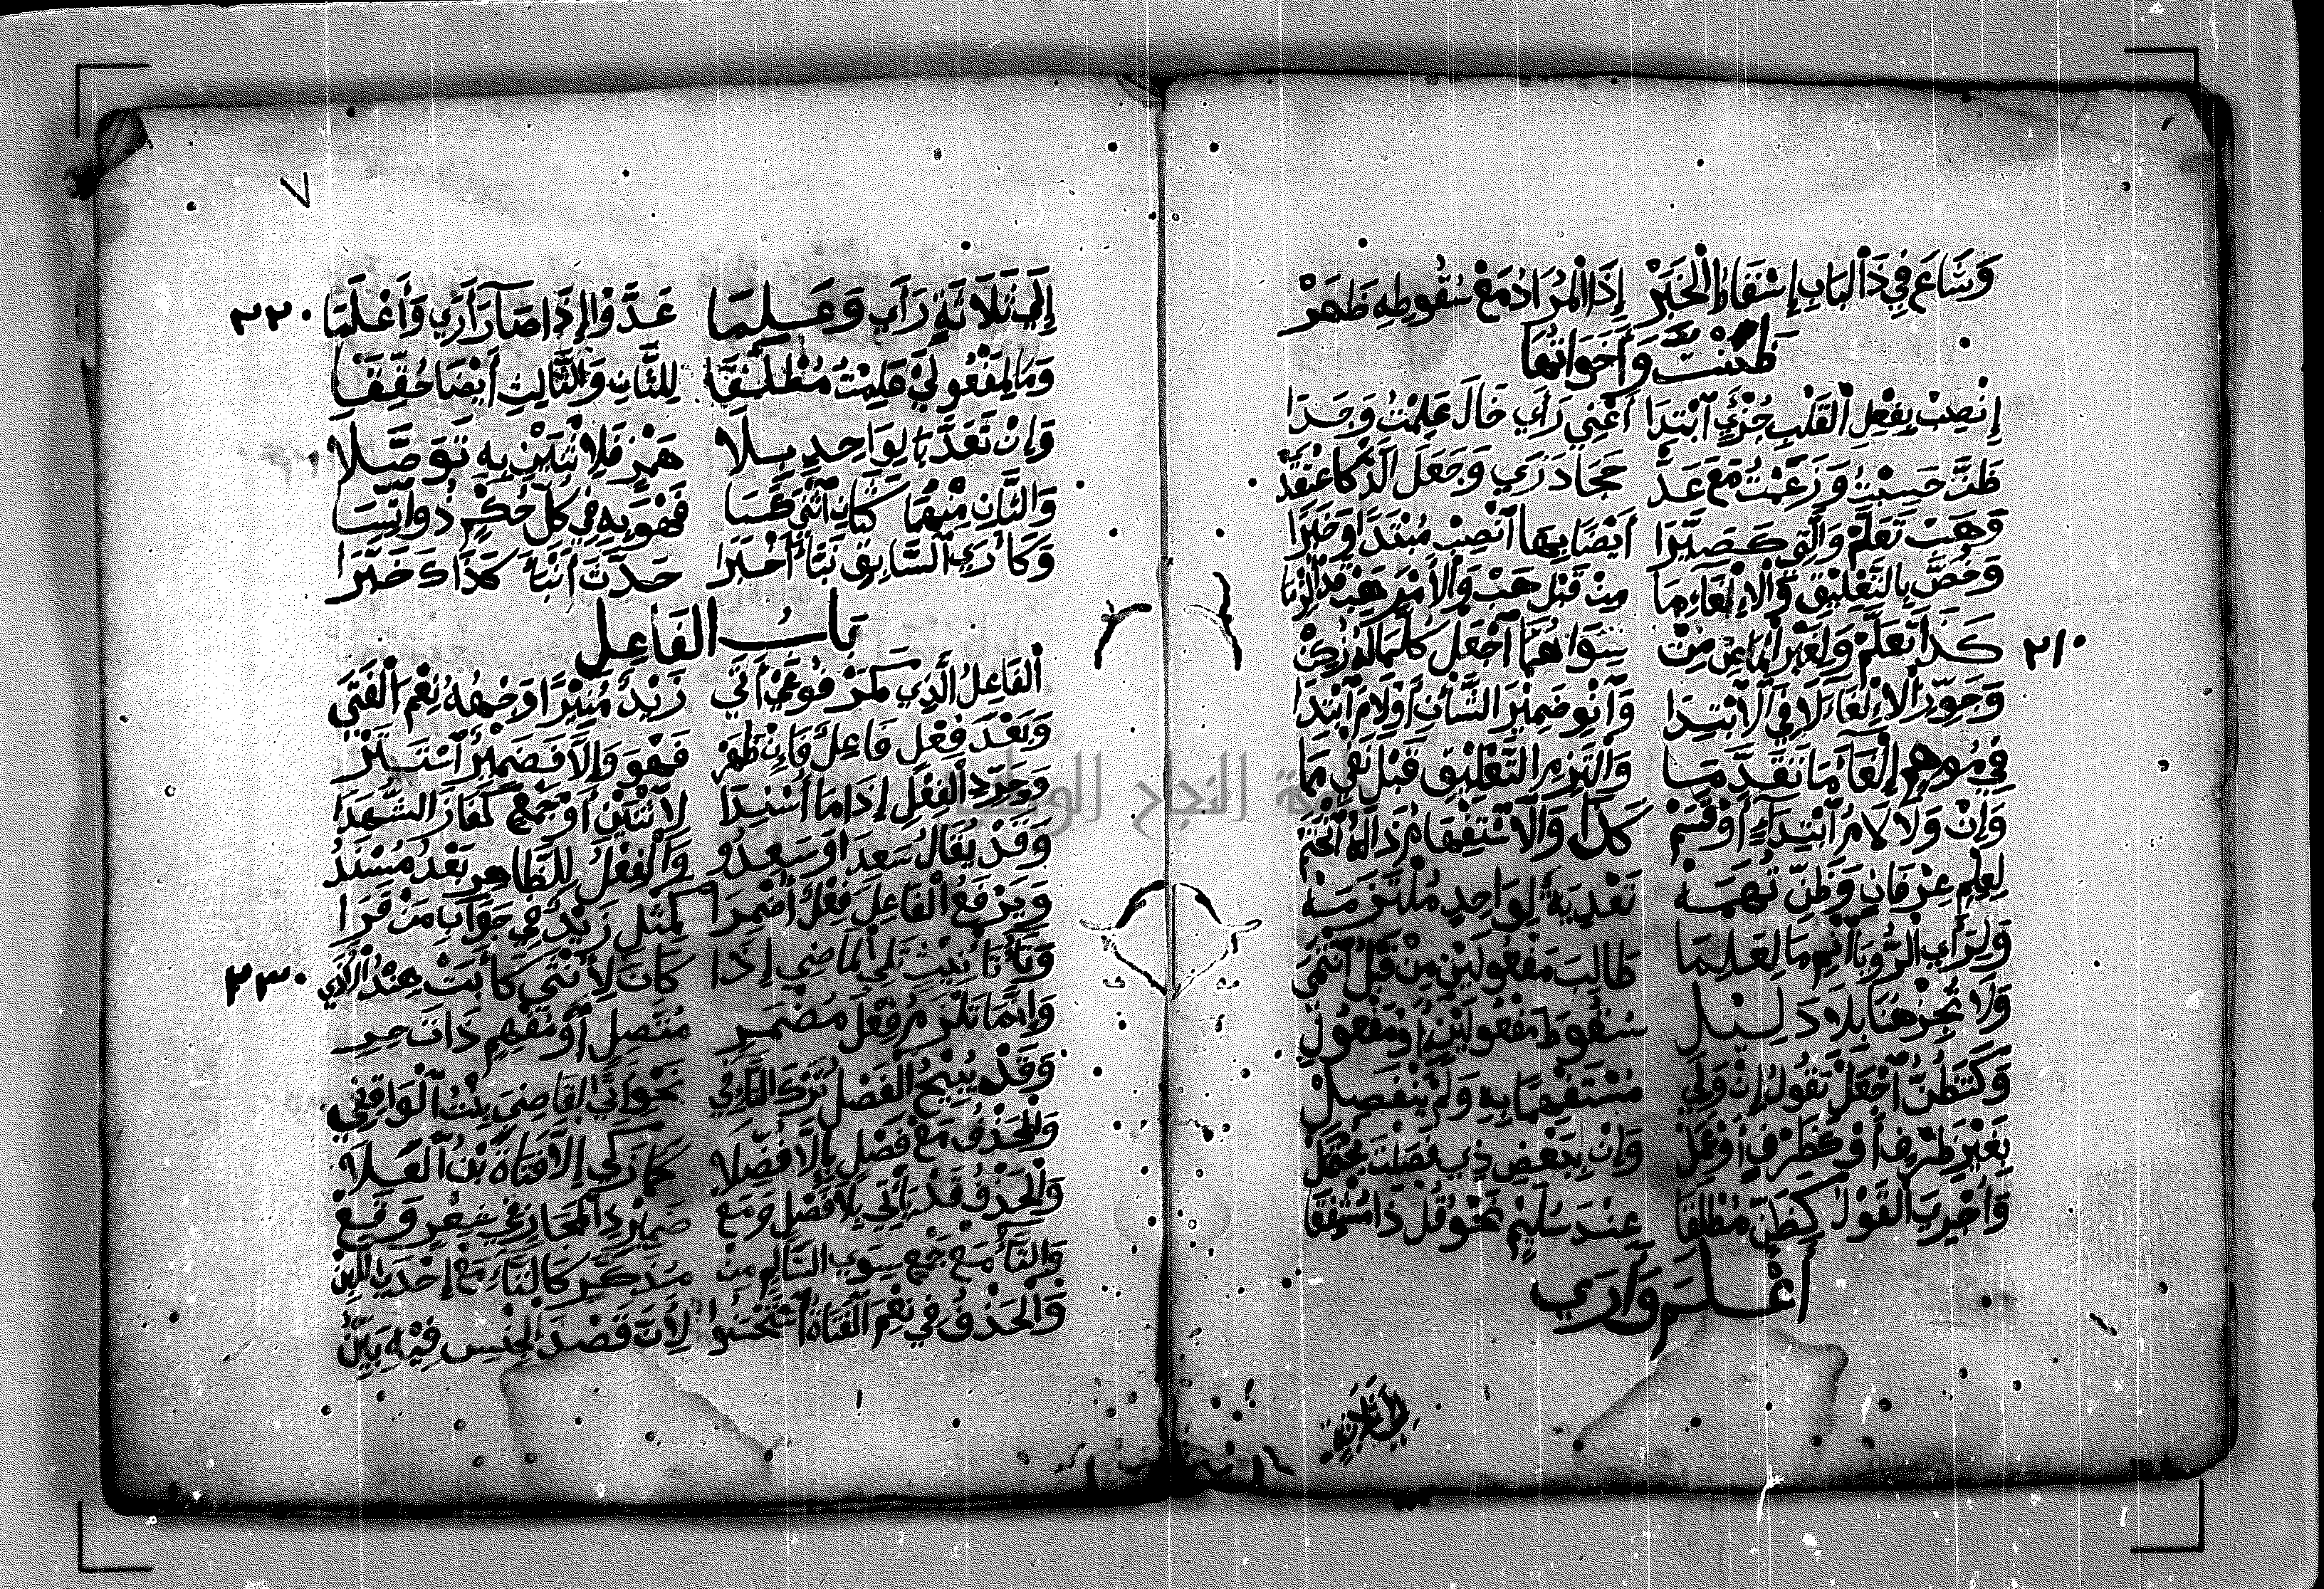 وَشَاعَ فِي ذَا الْبَابِ إِسْقَاطُ الْخَبَرْ إِذَا الْمُرَادُ مَعْ سُقُوطِهِ ظَهَرْ
ظَنَنْتُ وَأَخَوَاتُهَا
إِنْصِبْ بِفِعْلِ الْقَلْبِ جُزْئَيِ ابْتِدَا أَعْنِي رَأَى خَالَ عَلِمْتُ وَجَدَا
ظَنَّ حَسِبْتُ وَزَعَمْتُ مَعَ عَدّْ حَجَا دَرَى وَجَعَلَ الَّذْ كَاعْتَقَدْ
وَهَبْ تَعَلَّمْ وَالَّتِي كَصَيَّرَا أَيْضًا بِهَا انْصِبْ مُبْتَدًا وَخَبَرَا
وَخُصَّ بِالتَّعْلِيقِ وَالْإِلْغَاءِ مَا مِنْ قَبْلِ هَبْ وَالْأَمْرَ هَبْ قَدْ أُلْزِمَا
٢١٠ كَذَا تَعَلَّمْ وَلِغَيْرِ الْمَاضِ مِنْ سِوَاهُمَا اجْعَلْ كُلَّ مَا لَهُ زُكِنْ
وَجَوِّزِ الْإِلْغَاءَ لَا فِي الِابْتِدَا وَانْوِ ضَمِيرَ الشَّأْنِ أَوْ لَامَ ابْتِدَا
فِي مُوهِمٍ إِلْغَاءَ مَا تَقَدَّمَا وَالْتَزِمِ التَّعْلِيقَ قَبْلَ نَفْيِ مَا
وَإِنْ وَلَا لَامُ ابْتِدَاءٍ أَوْ قَسَمْ كَذَا وَالِاسْتِفْهَامُ ذَا لَهُ انْحَتَمْ
لِعِلْمِ عِرْفَانٍ وَظَنٍّ تُهَمَهْ تَعْدِيَةٌ لِوَاحِدٍ مُلْتَزَمَهْ
وَلِرَأَى الرُّؤْيَا انْمِ مَا لِعَلِمَا طَالِبَ مَفْعُولَيْنِ مِنْ قَبْلُ انْتَمَى
وَلَا تُجِزْ هُنَا بِلَا دَلِيلِ سُقُوطَ مَفْعُولَيْنِ أَوْ مَفْعُولِ
وَكَتَظُنُّ اجْعَلْ تَقُولُ إِنْ وَلِي مُسْتَفْهَمًا بِهِ وَلَمْ يَنْفَصِلْ
بِغَيْرِ ظَرْفٍ أَوْ كَظَرْفٍ أَوْ عَمَلْ وَإِنْ بِبَعْضِ ذِي فَصَلْتَ يُحْتَمَلْ
وَأُجْرِيَ الْقَوْلُ كَظَنٍّ مُطْلَقَا عِنْدَ سُلَيْمٍ نَحْوُ قُلْ ذَا مُشْفِقَا
أَعْلَمَ وَأَرَى
إِلَى ثَلَاثَةٍ
٧
إِلَى ثَلَاثَةٍ رَأَى وَعَلِمَا عَدَّوْا إِذَا صَارَا أَرَى وَأَعْلَمَا ٢٢٠
وَمَا لِمَفْعُولَيْ عَلِمْتُ مُطْلَقَا لِلثَّانِ وَالثَّالِثِ أَيْضًا حُقِّقَا
وَإِنْ تَعَدَّيَا لِوَاحِدٍ بِلَا هَمْزٍ فَلِاثْنَيْنِ بِهِ تَوَصَّلَا
وَالثَّانِ مِنْهُمَا كَثَانِي اثْنَيْ كَسَا فَهْوَ بِهِ فِي كُلِّ حُكْمٍ ذُو ائْتِسَا
وَكَأَرَى السَّابِقِ نَبَّأَ أَخْبَرَا حَدَّثَ أَنْبَأَ كَذَاكَ خَبَّرَا
بَابُ الفَاعِل
الْفَاعِلُ الَّذِي كَمَرْفُوعَيْ أَتَى زَيْدٌ مُنِيرًا وَجْهُهُ نِعْمَ الْفَتَى
وَبَعْدَ فِعْلٍ فَاعِلٌ فَإِنْ ظَهَرْ فَهْوَ وَإِلَّا فَضَمِيرٌ اسْتَتَرْ
وَجَرِّدِ الْفِعْلَ إِذَا مَا أُسْنِدَا لِاثْنَيْنِ أَوْ جَمْعٍ كَفَازَ الشُّهَدَا
وَقَدْ يُقَالُ سَعِدَا وَسَعِدُوا وَالْفِعْلُ لِلظَّاهِرِ بَعْدُ مُسْنَدُ
وَيَرْفَعُ الْفَاعِلَ فِعْلٌ أُضْمِرَا كَمِثْلِ زَيْدٌ فِي جَوَابِ مَنْ قَرَا
وَتَاءُ تَأْنِيثٍ تَلِي الْمَاضِي إِذَا كَانَ لِأُنْثَى كَأَبَتْ هِنْدُ الْأَذَى ٢٣٠
وَإِنَّمَا تَلْزَمُ فِعْلَ مُضْمَرِ مُتَّصِلٍ أَوْ مُفْهِمٍ ذَاتَ حِرِ
وَقَدْ يُبِيحُ الْفَصْلُ تَرْكَ التَّاءِ فِي نَحْوِ أَتَى الْقَاضِيَ بِنْتُ الْوَاقِفِي
وَالْحَذْفُ مَعْ فَصْلٍ بِإِلَّا فُضِّلَا كَمَا زَكَى إِلَّا فَتَاةُ بْنُ الْعَلَا
وَالْحَذْفُ قَدْ يَأْتِي بِلَا فَصْلٍ وَمَعْ ضَمِيرِ ذِي الْمَجَازِ فِي شِعْرٍ وَقَعْ
وَالتَّاءُ مَعْ جَمْعٍ سِوَى السَّالِمِ مِنْ مُذَكَّرٍ كَالتَّاءِ مَعْ إِحْدَى اللَّبِنْ
وَالْحَذْفَ فِي نِعْمَ الْفَتَاةُ اسْتَحْسَنُوا لِأَنَّ قَصْدَ الْجِنْسِ فِيهِ بَيِّنُ